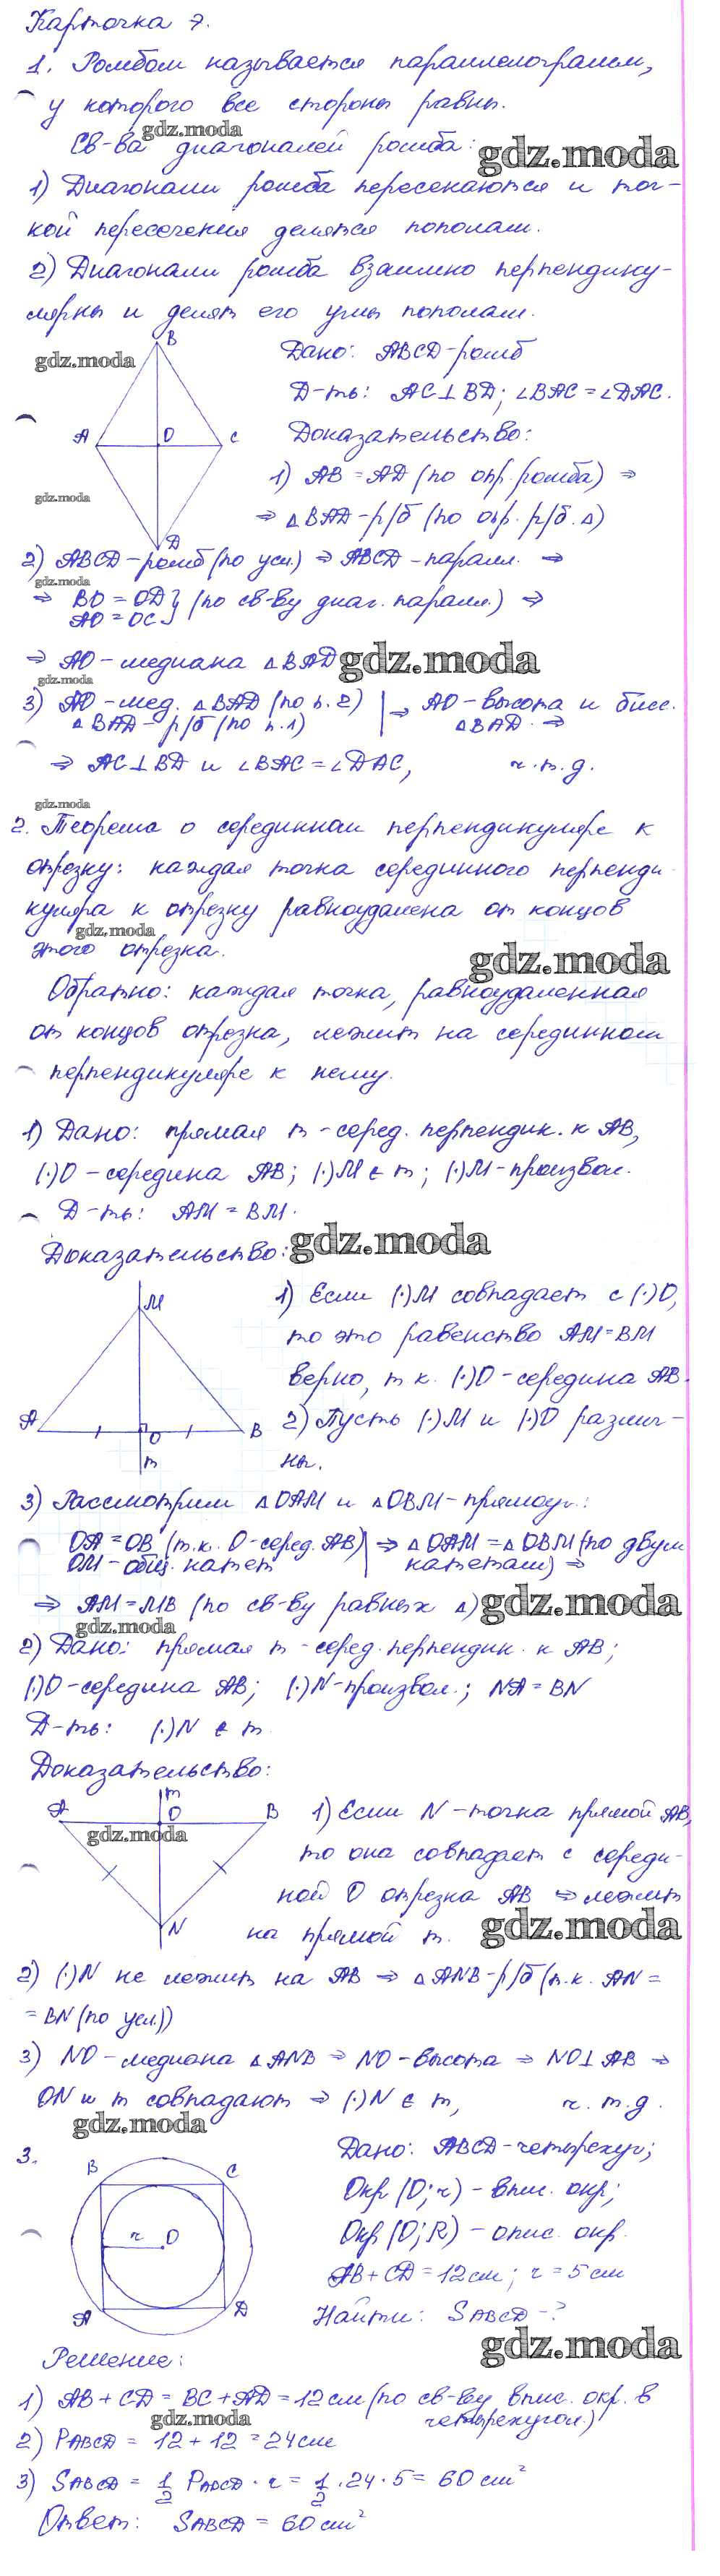 Карточка 7.
1. Ромбом называется параллелограмм,
у которого все стороны равны.
gdz.moda
Св-ва диагоналей ромба:
gdz.moda
1) Диагонали ромба пересекаются и точ-
кой пересечения делятся пополам.
2) Диагонали ромба взаимно перпендику-
лярны и делят его углы пополам.
B
gdz.moda
Дано: ABCD-ромб
Д-ть: AC⊥BD; ∠BAC=∠DAC.
A O C
Доказательство:
1) AB=AD (по опр. ромба) ⇒
gdz.moda
⇒ △BAD-р/б (по опр. р/б △)
D
2) ABCD-ромб (по усл.) ⇒ ABCD-паралл. ⇒
gdz.moda
⇒ BO=OD} (по св-ву диаг. паралл.) ⇒
AO=OC
⇒ AO-медиана △BAD
gdz.moda
gdz.moda
3) AO-мед. △BAD (по п.2) | ⇒ AO-высота и бисс.
△BAD-р/б (по п.1) △BAD. ⇒
⇒ AC⊥BD и ∠BAC=∠DAC, ч.т.д.
gdz.moda
2. Теорема о серединном перпендикуляре к
отрезку: каждая точка серединного перпенди-
куляра к отрезку равноудалена от концов
gdz.moda
этого отрезка.
gdz.moda
Обратно: каждая точка, равноудаленная
от концов отрезка, лежит на серединном
перпендикуляре к нему.
1) Дано: прямая m-серед. перпендик. к AB,
(·)O-середина AB; (·)M∈m; (·)M-произвол.
Д-ть: AM=BM.
Доказательство:
gdz.moda
M
1) Если (·)M совпадает с (·)O,
то это равенство AM=BM
верно, т.к. (·)O-середина AB.
A O B
2) Пусть (·)M и (·)O различ-
m
ны.
3) Рассмотрим △OAM и △OBM-прямоуг.:
OA=OB (т.к. O-серед. AB) | ⇒ △OAM=△OBM (по двум
OM-общ. катет катетам) ⇒
⇒ AM=MB (по св-ву равных △)
gdz.moda
gdz.moda
2) Дано: прямая m-серед. перпендик. к AB;
(·)O-середина AB; (·)N-произвол.; NA=BN
Д-ть: (·)N∈m.
Доказательство:
m
A O B
gdz.moda
1) Если N-точка прямой AB,
то она совпадает с середи-
ной O отрезка AB ⇒ лежит
N
на прямой m.
gdz.moda
2) (·)N не лежит на AB ⇒ △ANB-р/б (т.к. AN=
=BN (по усл.))
3) NO-медиана △ANB ⇒ NO-высота ⇒ NO⊥AB ⇒
ON и m совпадают ⇒ (·)N∈m, ч.т.д.
gdz.moda
3.
Дано: ABCD-четырехуг;
B C
Окр (O;r)-впис. окр;
r O
Окр (O;R)-опис. окр.
AB+CD=12см; r=5см
A D
Найти: SABCD-?
gdz.moda
Решение:
1) AB+CD=BC+AD=12см (по св-ву впис. окр. в
четырехугол.)
gdz.moda
2) PABCD=12+12=24см
3) SABCD=1/2 PABCD·r=1/2·24·5=60см²
Ответ: SABCD=60см²